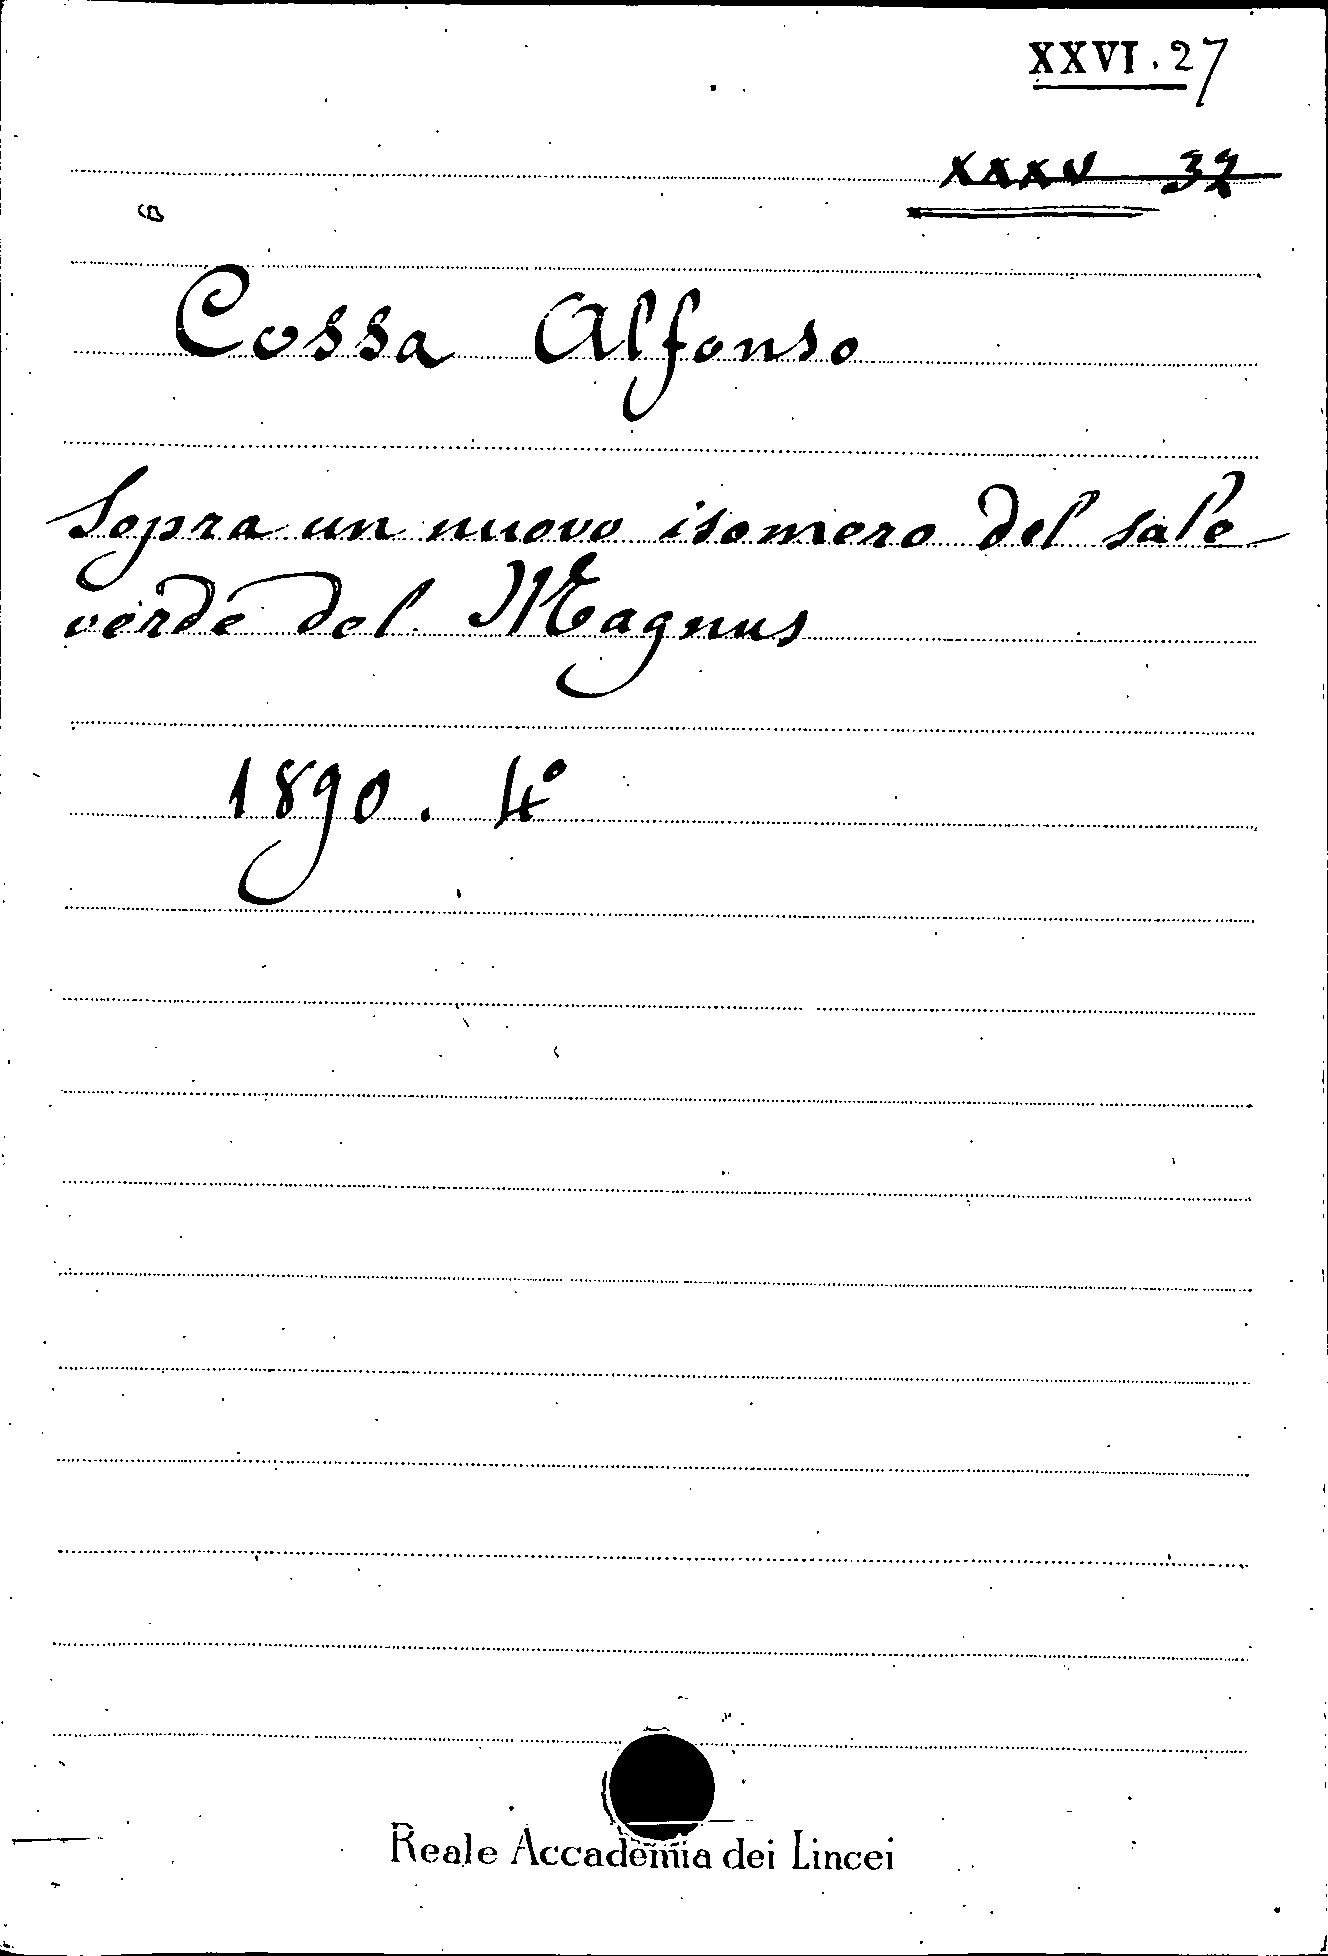 XXVI. 27
XXXV 32
Cossa Alfonso
Sopra un nuovo isomero del sale
verde del Magnus
1890. 4º
Reale Accademia dei Lincei